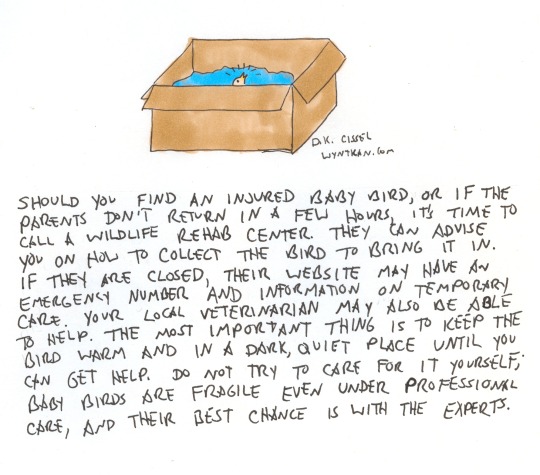 D.K. CISSEL
WYNTKAN.COM
SHOULD YOU FIND AN INJURED BABY BIRD, OR IF THE
PARENTS DON'T RETURN IN A FEW HOURS, IT'S TIME TO
CALL A WILDLIFE REHAB CENTER. THEY CAN ADVISE
YOU ON HOW TO COLLECT THE BIRD TO BRING IT IN.
IF THEY ARE CLOSED, THEIR WEBSITE MAY HAVE AN
EMERGENCY NUMBER AND INFORMATION ON TEMPORARY
CARE. YOUR LOCAL VETERINARIAN MAY ALSO BE ABLE
TO HELP. THE MOST IMPORTANT THING IS TO KEEP THE
BIRD WARM AND IN A DARK, QUIET PLACE UNTIL YOU
CAN GET HELP. DO NOT TRY TO CARE FOR IT YOURSELF;
BABY BIRDS ARE FRAGILE EVEN UNDER PROFESSIONAL
CARE, AND THEIR BEST CHANCE IS WITH THE EXPERTS.